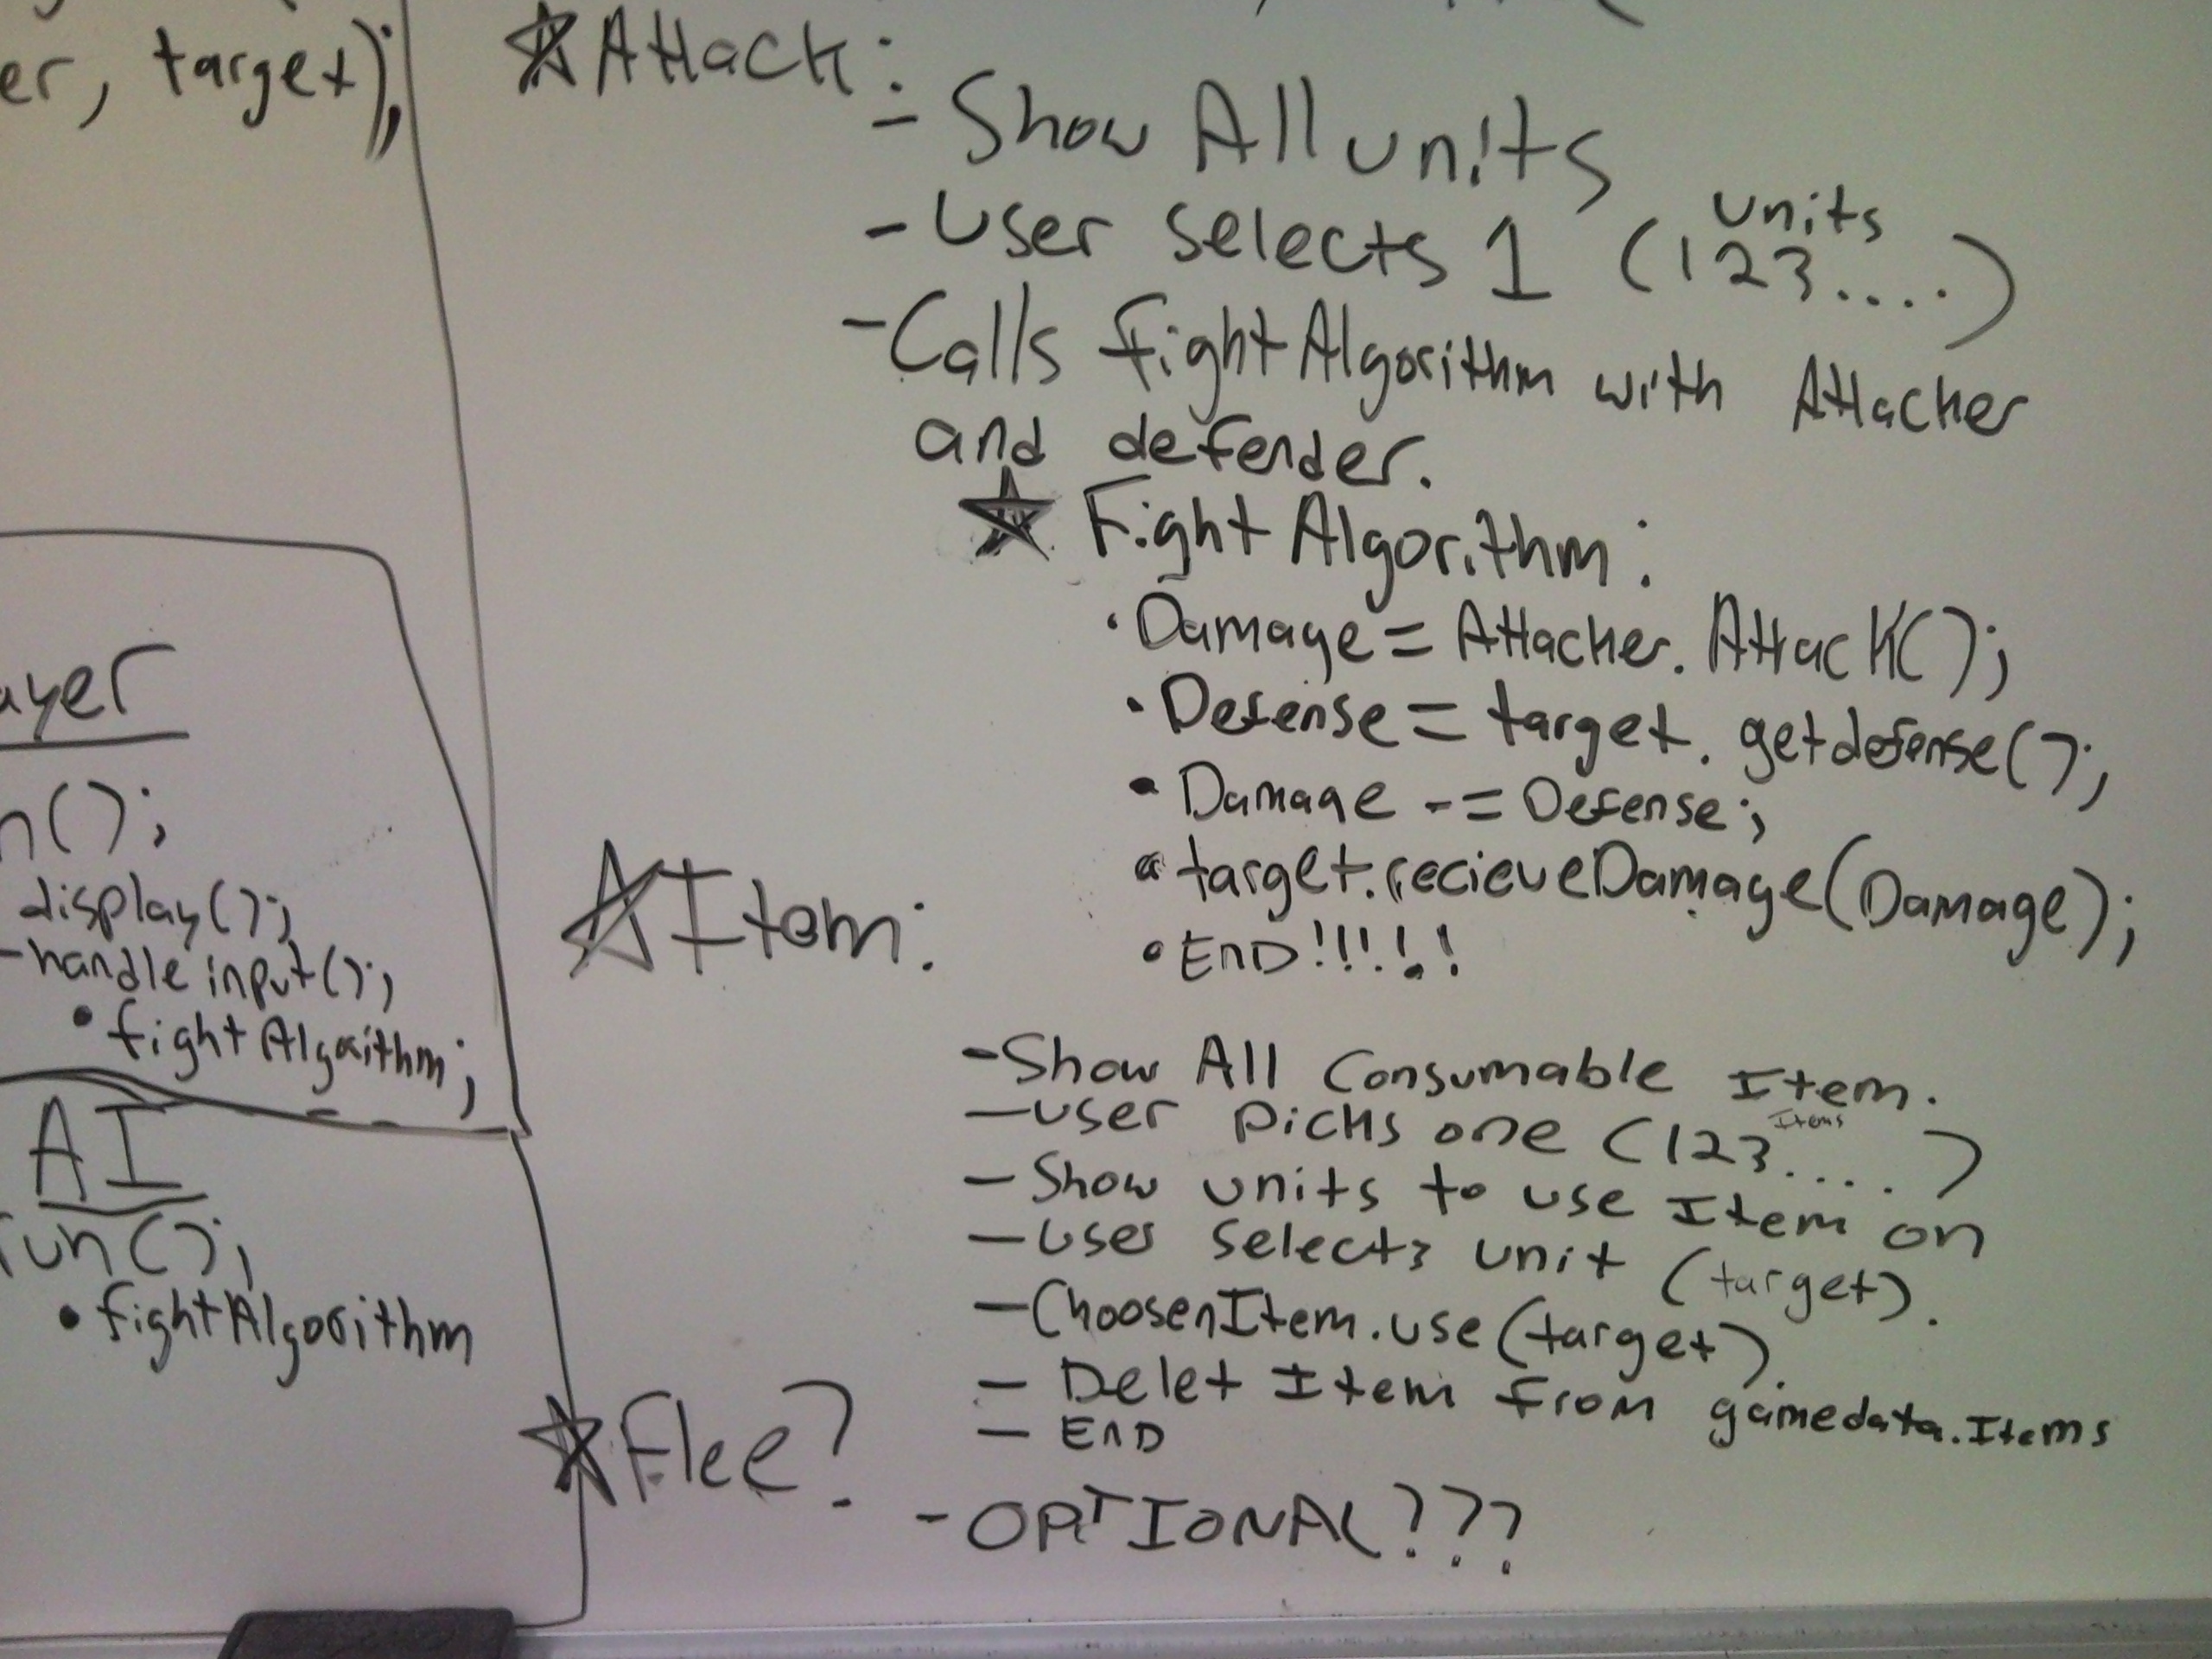 er, target);
ayer
n();
display();
-handle input();
• fightAlgorithm;
AI
run();
• fightAlgorithm
Attack:
- Show All units
- User selects 1 (123....)
units
- Calls fightAlgorithm with Attacker
and defender.
Fight Algorithm:
• Damage = Attacker. Attack();
• Defense = target. getdefense();
• Damage -= Defense;
• target.recieveDamage(Damage);
• END!!!!!
Item:
- Show All Consumable Item.
- user picks one (123....)
Items
- Show units to use Item on
- User selects unit (target).
- ChoosenItem.use(target)
- Delet Item from gamedata.Items
- END
Flee?
- OPTIONAL???